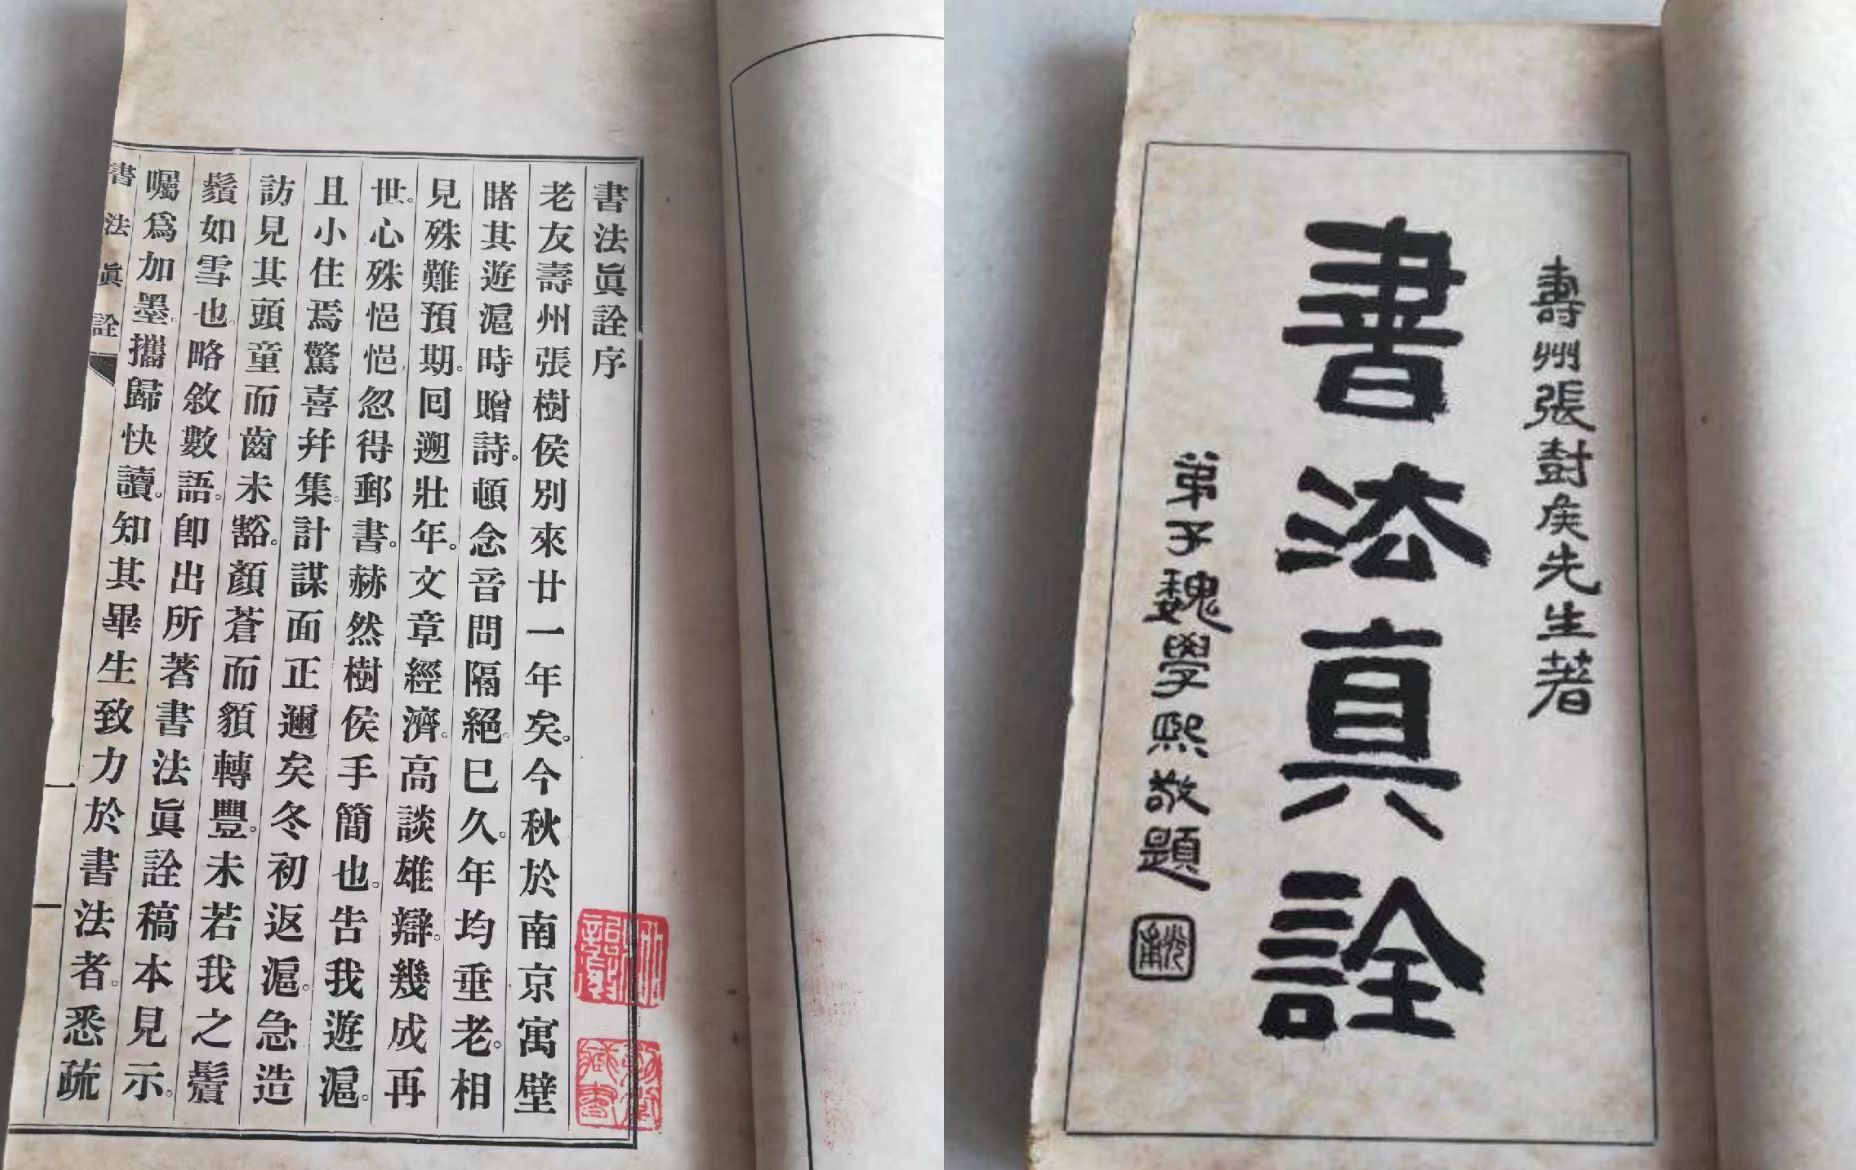 書法眞詮序
老友壽州張樹侯別來廿一年矣。今秋於南京寓壁
睹其遊滬時贈詩。頓念音問隔絕。已久。年均垂老。相
見殊難預期。回遡壯年。文章經濟。高談雄辯。幾成再
世。心殊悒悒。忽得郵書。赫然樹侯手簡也。告我遊滬。
且小住焉驚喜幷集。計謀面正邇矣冬初返滬。急造
訪見其頭童而齒未豁。顏蒼而頟轉豐。未若我之鬢
鬚如雪也。略敘數語。卽出所著書法眞詮稿本見示。
囑爲加墨。攜歸快讀。知其畢生致力於書法者。悉疏
書法眞詮
一
壽州張樹侯先生著
書法真詮
弟子魏學熙敬題